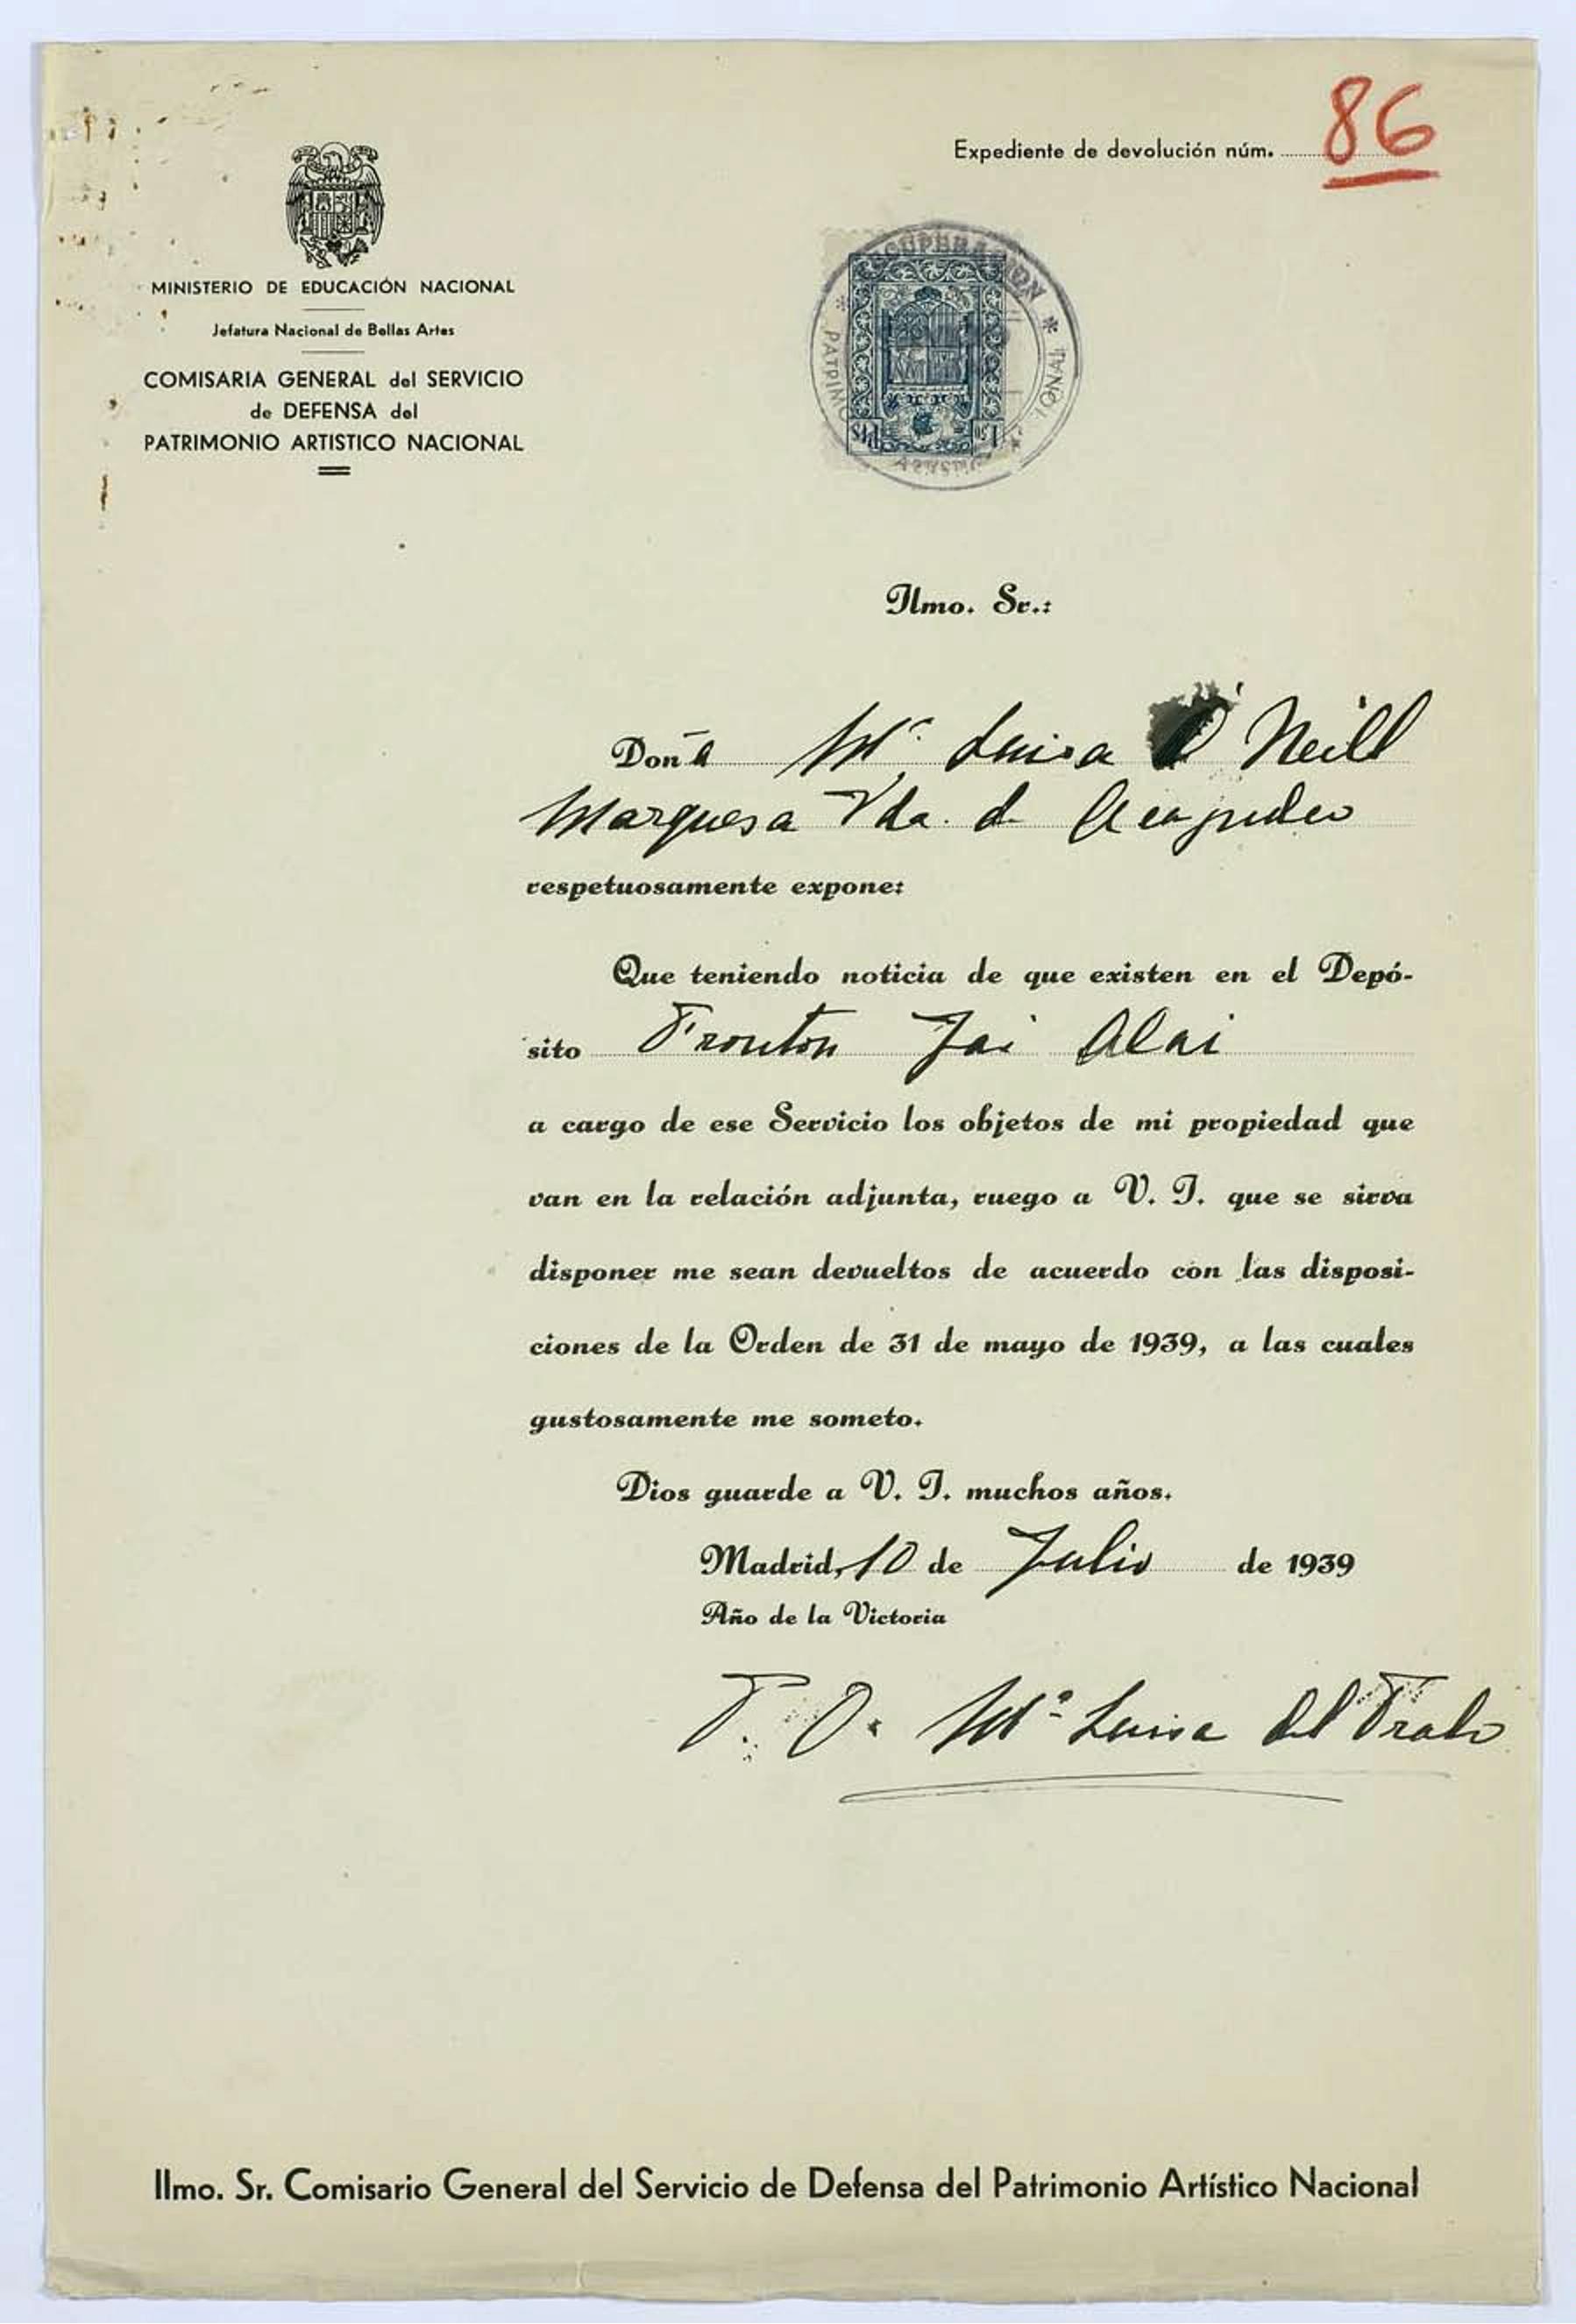 Expediente de devolución núm. 86
MINISTERIO DE EDUCACIÓN NACIONAL
Jefatura Nacional de Bellas Artes
COMISARIA GENERAL del SERVICIO
de DEFENSA del
PATRIMONIO ARTISTICO NACIONAL
1,50 Pts
Ilmo. Sr.:
Doña Mª Luisa O'Neill
Marquesa Vda. de
respetuosamente expone:
Que teniendo noticia de que existen en el Depó-
sito Fronton Jai Alai
a cargo de ese Servicio los objetos de mi propiedad que
van en la relación adjunta, ruego a V. I. que se sirva
disponer me sean devueltos de acuerdo con las disposi-
ciones de la Orden de 31 de mayo de 1939, a las cuales
gustosamente me someto.
Dios guarde a V. I. muchos años.
Madrid, 10 de Julio de 1939
Año de la Victoria
P. O. Mª Luisa del Prado
Ilmo. Sr. Comisario General del Servicio de Defensa del Patrimonio Artístico Nacional